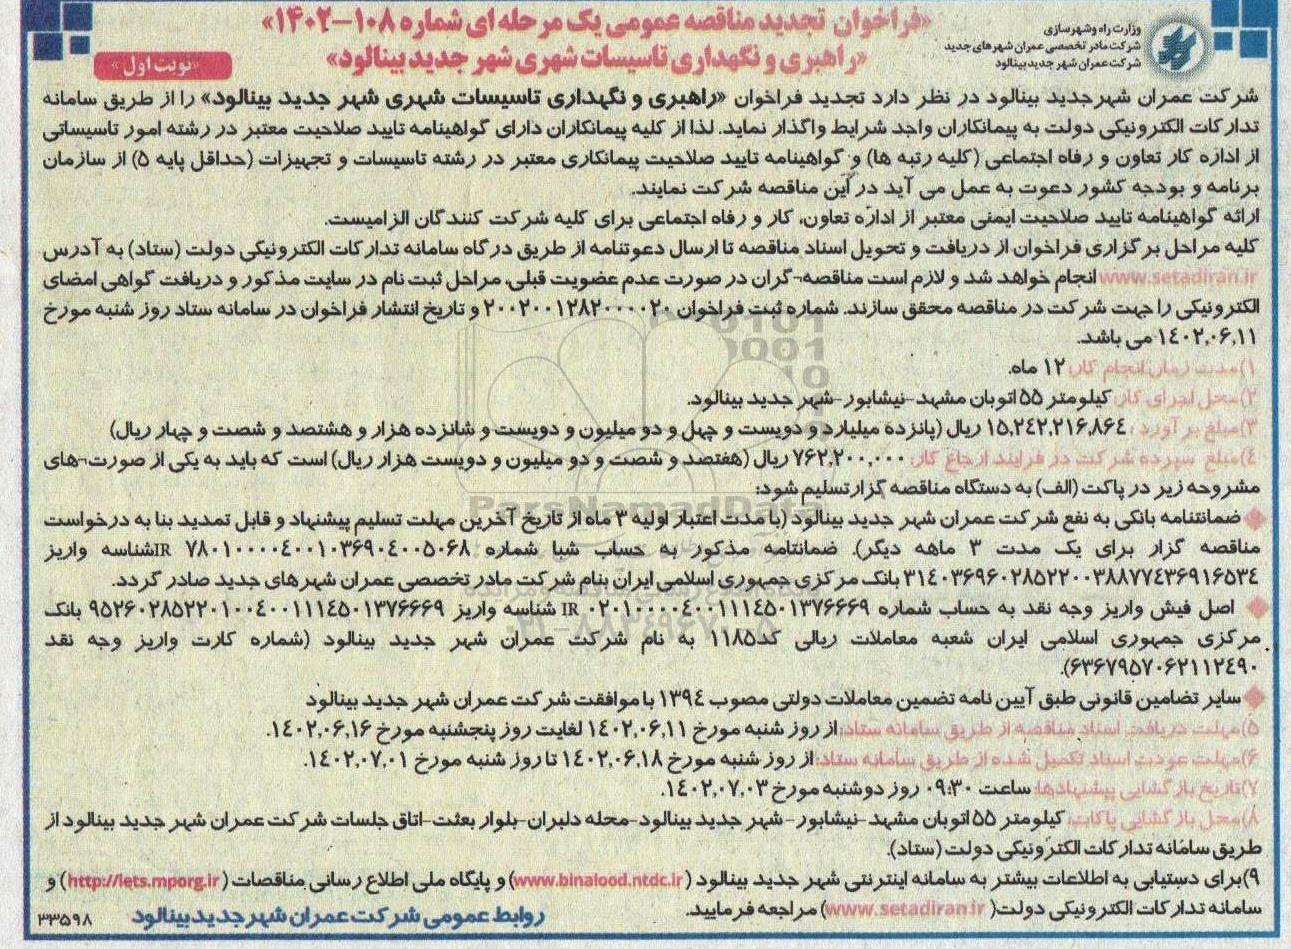 وزارت راه و شهرسازی
شرکت مادر تخصصی عمران شهرهای جدید
شرکت عمران شهر جدید بینالود
«فراخوان تجدید مناقصه عمومی یک مرحله ای شماره ۱۰۸-۱۴۰۲»
«راهبری و نگهداری تاسیسات شهری شهر جدید بینالود»
«نوبت اول»
شرکت عمران شهرجدید بینالود در نظر دارد تجدید فراخوان «راهبری و نگهداری تاسیسات شهری شهر جدید بینالود» را از طریق سامانه
تدارکات الکترونیکی دولت به پیمانکاران واجد شرایط واگذار نماید. لذا از کلیه پیمانکاران دارای گواهینامه تایید صلاحیت معتبر در رشته امور تاسیساتی
از اداره کار تعاون و رفاه اجتماعی (کلیه رتبه ها) و گواهینامه تایید صلاحیت پیمانکاری معتبر در رشته تاسیسات و تجهیزات (حداقل پایه ۵) از سازمان
برنامه و بودجه کشور دعوت به عمل می آید در این مناقصه شرکت نمایند.
ارائه گواهینامه تایید صلاحیت ایمنی معتبر از اداره تعاون، کار و رفاه اجتماعی برای کلیه شرکت کنندگان الزامیست.
کلیه مراحل برگزاری فراخوان از دریافت و تحویل اسناد مناقصه تا ارسال دعوتنامه از طریق درگاه سامانه تدارکات الکترونیکی دولت (ستاد) به آدرس
www.setadiran.ir انجام خواهد شد و لازم است مناقصه¬گران در صورت عدم عضویت قبلی، مراحل ثبت نام در سایت مذکور و دریافت گواهی امضای
الکترونیکی را جهت شرکت در مناقصه محقق سازند. شماره ثبت فراخوان ۲۰۰۲۰۰۱۲۸۲۰۰۰۰۲۰ و تاریخ انتشار فراخوان در سامانه ستاد روز شنبه مورخ
۱۴۰۲,۰۶,۱۱ می باشد.
۱)مدت زمان انجام کار: ۱۲ ماه.
۲)محل اجرای کار: کیلومتر ۵۵ اتوبان مشهد-نیشابور-شهر جدید بینالود.
۳)مبلغ برآورد : ۱۵,۲۴۲,۲۱۶,۸۶۴ ریال (پانزده میلیارد و دویست و چهل و دو میلیون و دویست و شانزده هزار و هشتصد و شصت و چهار ریال)
۴)مبلغ سپرده شرکت در فرایند ارجاع کار: ۷۶۲,۲۰۰,۰۰۰ ریال (هفتصد و شصت و دو میلیون و دویست هزار ریال) است که باید به یکی از صورت¬های
مشروحه زیر در پاکت (الف) به دستگاه مناقصه گزار تسلیم شود:
◆ ضمانتنامه بانکی به نفع شرکت عمران شهر جدید بینالود (با مدت اعتبار اولیه ۳ ماه از تاریخ آخرین مهلت تسلیم پیشنهاد و قابل تمدید بنا به درخواست
مناقصه گزار برای یک مدت ۳ ماهه دیگر). ضمانتنامه مذکور به حساب شبا شماره IR ۷۸۰۱۰۰۰۰۴۰۰۱۰۳۶۹۰۴۰۰۵۰۶۸ شناسه واریز
۳۱۴۰۳۶۹۶۰۲۸۵۲۲۰۰۳۸۸۷۷۴۳۶۹۱۶۵۳۴ بانک مرکزی جمهوری اسلامی ایران بنام شرکت مادر تخصصی عمران شهرهای جدید صادر گردد.
◆ اصل فیش واریز وجه نقد به حساب شماره IR ۰۲۰۱۰۰۰۰۴۰۰۱۱۱۴۵۰۱۳۷۶۶۶۹ شناسه واریز ۹۵۲۶۰۲۸۵۲۲۰۱۰۰۴۰۰۱۱۱۴۵۰۱۳۷۶۶۶۹ بانک
مرکزی جمهوری اسلامی ایران شعبه معاملات ریالی کد۱۱۸۵ به نام شرکت عمران شهر جدید بینالود (شماره کارت واریز وجه نقد
۶۳۶۷۹۵۷۰۶۲۱۱۲۴۹۰).
◆ سایر تضامین قانونی طبق آیین نامه تضمین معاملات دولتی مصوب ۱۳۹۴ با موافقت شرکت عمران شهر جدید بینالود
۵)مهلت دریافت اسناد مناقصه از طریق سامانه ستاد: از روز شنبه مورخ ۱۴۰۲,۰۶,۱۱ لغایت روز پنجشنبه مورخ ۱۴۰۲,۰۶,۱۶.
۶)مهلت عودت اسناد تکمیل شده از طریق سامانه ستاد: از روز شنبه مورخ ۱۴۰۲,۰۶,۱۸ تا روز شنبه مورخ ۱۴۰۲,۰۷,۰۱.
۷)تاریخ بازگشایی پیشنهادها: ساعت ۰۹:۳۰ روز دوشنبه مورخ ۱۴۰۲,۰۷,۰۳.
۸)محل بازگشایی پاکات: کیلومتر ۵۵ اتوبان مشهد-نیشابور-شهر جدید بینالود-محله دلبران-بلوار بعثت-اتاق جلسات شرکت عمران شهر جدید بینالود از
طریق سامانه تدارکات الکترونیکی دولت (ستاد).
۹)برای دستیابی به اطلاعات بیشتر به سامانه اینترنتی شهر جدید بینالود (www.binalood.ntdc.ir) و پایگاه ملی اطلاع رسانی مناقصات (http://iets.mporg.ir) و
سامانه تدارکات الکترونیکی دولت( www.setadiran.ir) مراجعه فرمایید.
روابط عمومی شرکت عمران شهر جدید بینالود
۳۳۵۹۸
ParsNamadData